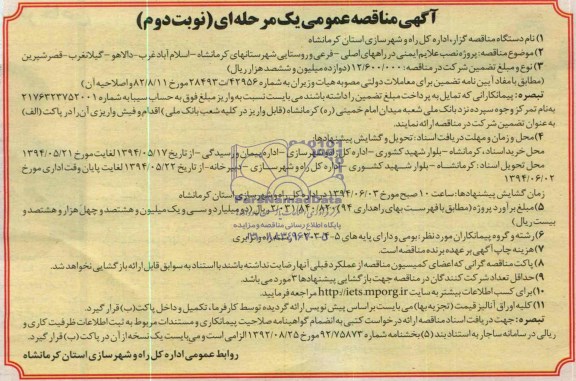 آگهی مناقصه عمومی یک مرحله ای (نوبت دوم)
۱) نام دستگاه مناقصه گزار: اداره کل راه و شهرسازی استان کرمانشاه
۲) موضوع مناقصه: پروژه نصب علایم ایمنی در راههای اصلی - فرعی و روستایی شهرستانهای کرمانشاه - اسلام آباد غرب - دالاهو - گیلانغرب - قصرشیرین
۳) نوع و مبلغ تضمین شرکت در مناقصه: ۱۲/۶۰۰/۰۰۰ (دوازده میلیون و ششصد هزار ریال)
(مطابق با مفاد آیین نامه تضمین برای معاملات دولتی مصوبه هیات وزیران به شماره ۴۲۹۵۶/ت۲۸۴۹۳ مورخ ۸۲/۸/۱۱ و اصلاحیه آن)
تبصره: پیمانکارانی که تمایل به پرداخت مبلغ تضمین را داشته باشند می بایست نسبت به واریز مبلغ فوق به حساب سیبا به شماره ۲۱۷۶۳۲۳۷۵۲۰۰۱
به نام تمرکز وجوه سپرده نزد بانک ملی شعبه میدان امام خمینی (ره) کرمانشاه (قابل واریز در کلیه شعب بانک ملی) اقدام و فیش واریزی آن را در پاکت (الف)
به عنوان تضمین شرکت در مناقصه ارائه نمایند.
۴) محل و زمان و مهلت دریافت اسناد، تحویل و گشایش پیشنهادها:
محل خرید اسناد: کرمانشاه - بلوار شهید کشوری - اداره کل راه و شهرسازی - اداره پیمان و رسیدگی - از تاریخ ۱۳۹۴/۰۵/۱۷ لغایت مورخ ۱۳۹۴/۰۵/۲۱
محل تحویل اسناد: کرمانشاه - بلوار شهید کشوری - اداره کل راه و شهرسازی - دبیرخانه - از تاریخ ۱۳۹۴/۰۵/۲۲ لغایت پایان وقت اداری مورخ
۱۳۹۴/۰۶/۰۲
زمان گشایش پیشنهادها: ساعت ۱۰ صبح مورخ ۱۳۹۴/۰۶/۰۳ در اداره کل راه و شهرسازی استان کرمانشاه
۵) مبلغ برآورد پروژه (مطابق با فهرست بهای راهداری ۹۴) ریال (دو میلیارد و سی و یک میلیون و هشتصد و چهل هزار و هشتصد و
بیست ریال)
۶) رشته و گروه پیمانکاران مورد نظر: بومی و دارای پایه های ۵-۴-۳-۲ رشته راه و ترابری
۷) هزینه چاپ آگهی بر عهده برنده مناقصه است.
۸) پاکت مناقصه گرانی که اعضای کمیسیون مناقصه از عملکرد قبلی آنها رضایت نداشته باشند با استناد به سوابق قابل ارائه بازگشایی نخواهد شد.
۹) حداقل تعداد شرکت کنندگان در مناقصه جهت بازگشایی پیشنهادها ۳ مورد می باشد.
۱۰) برای کسب اطلاعات بیشتر به سایت http://iets.mporg.ir مراجعه فرمایید.
۱۱) کلیه اوراق آنالیز قیمت (تجزیه بها) می بایست براساس پیش نویس ارائه گردیده توسط کارفرما، تکمیل و داخل پاکت (ب) قرار گیرد.
تبصره: جهت دریافت اسناد مناقصه ارائه درخواست کتبی به انضمام گواهینامه صلاحیت پیمانکاری و مستندات مربوط به ثبت اطلاعات ظرفیت کاری و
ریالی در سامانه ساجار به استناد بند (۵) بخشنامه شماره ۹۲/۷۵۸۷۳ مورخ ۱۳۹۲/۰۸/۲۵ الزامی است و می بایست یک نسخه از آن در پاکت (ب) قرار گیرد.
روابط عمومی اداره کل راه و شهرسازی استان کرمانشاه